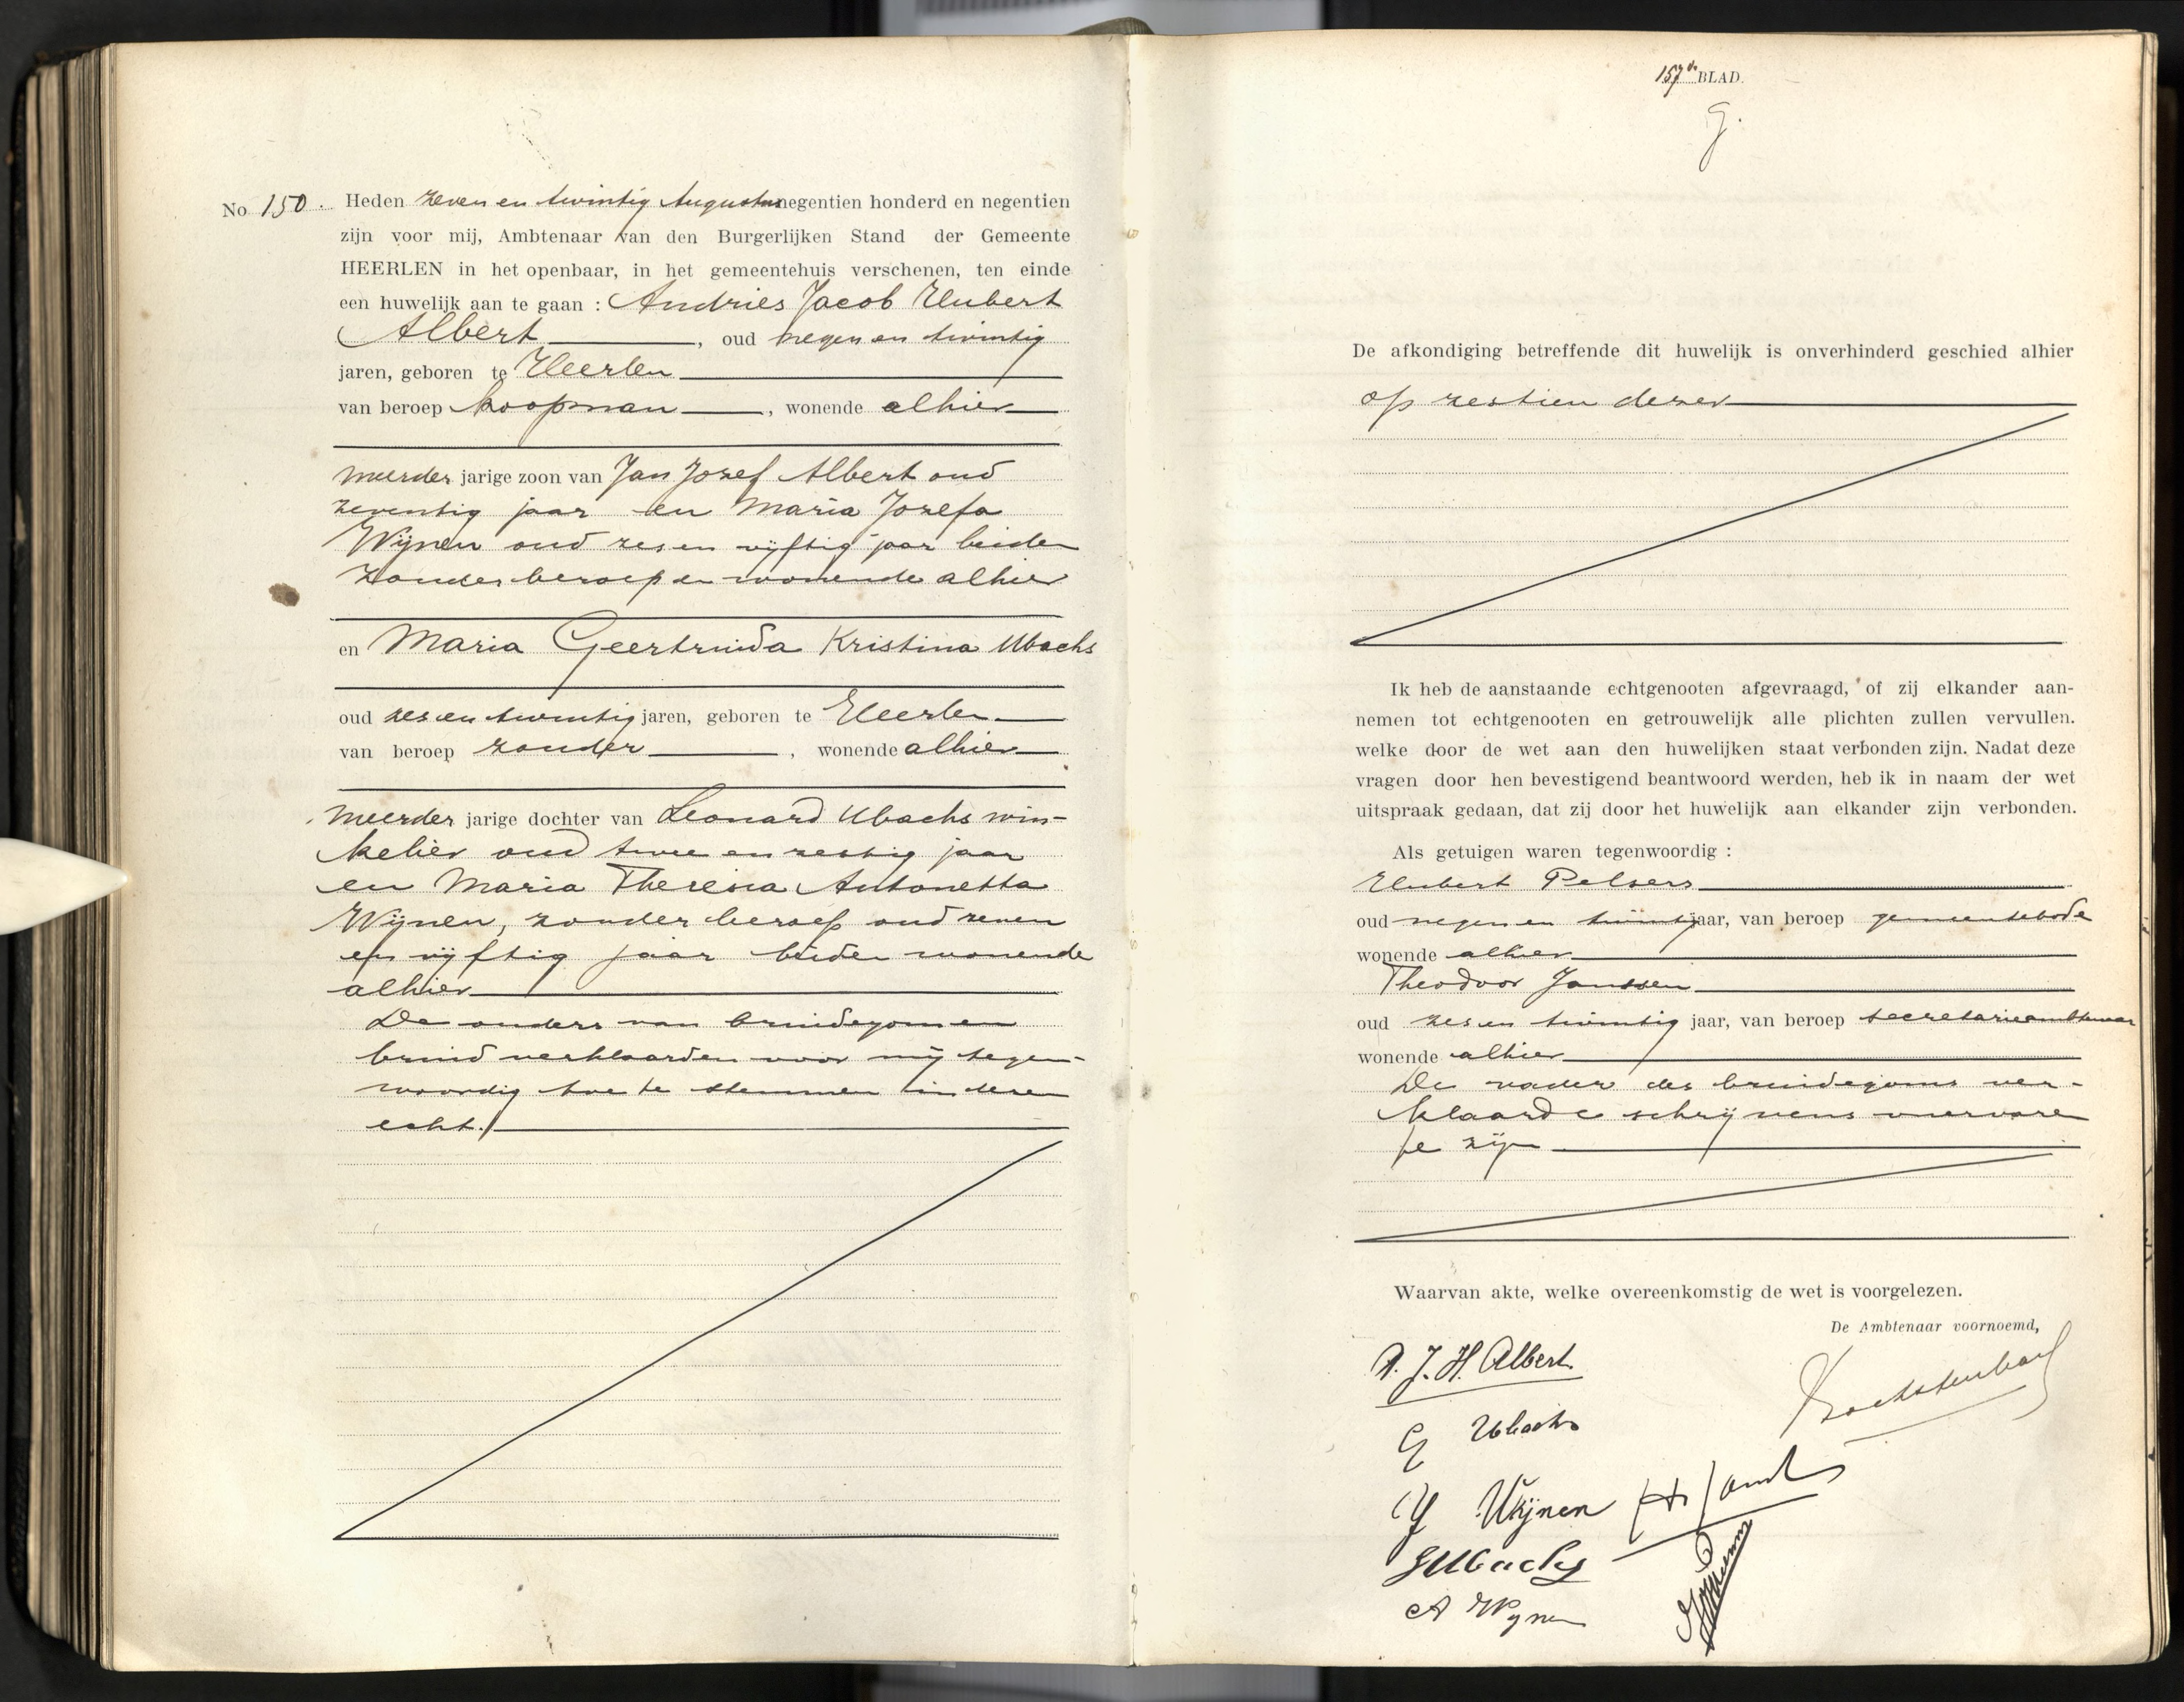 No 150. Heden zeven en twintig Augustus negentien honderd en negentien
zijn voor mij, Ambtenaar van den Burgerlijken Stand der Gemeente
HEERLEN in het openbaar, in het gemeentehuis verschenen, ten einde
een huwelijk aan te gaan : Andries Jacob Hubert
Albert, oud negen en twintig
jaren, geboren te Heerlen
van beroep koopman, wonende alhier
meerder jarige zoon van Jan Jozef Albert oud
zeventig jaar en Maria Jozefa
Wijnen oud zes en vijftig jaar beiden
zonder beroep en wonende alhier
en Maria Geertruida Kristina Ubachs
oud zes en twintig jaren, geboren te Heerlen
van beroep zonder, wonende alhier
meerder jarige dochter van Leonard Ubachs win-
kelier oud twee en zestig jaar
en Maria Theresia Antonetta
Wijnen, zonder beroep oud zeven
en vijftig jaar beiden wonende
alhier
De ouders van bruidegom en
bruid verklaarden voor mij tegen-
woordig toe te stemmen in dezen
echt.
157e BLAD.
De afkondiging betreffende dit huwelijk is onverhinderd geschied alhier
op zestien dezer
Ik heb de aanstaande echtgenooten afgevraagd, of zij elkander aan-
nemen tot echtgenooten en getrouwelijk alle plichten zullen vervullen.
welke door de wet aan den huwelijken staat verbonden zijn. Nadat deze
vragen door hen bevestigend beantwoord werden, heb ik in naam der wet
uitspraak gedaan, dat zij door het huwelijk aan elkander zijn verbonden.
Als getuigen waren tegenwoordig :
Hubert Pelsers
oud negen en twintig jaar, van beroep gemeentebode
wonende alhier
Theodoor Janssen
oud zes en twintig jaar, van beroep secretarieambtenaar
wonende alhier
De vader des bruidegoms ver-
klaarde schrijvens onervaren
te zijn
Waarvan akte, welke overeenkomstig de wet is voorgelezen.
De Ambtenaar voornoemd,
A. J. H. Albert
G Ubachs
Wijnen
Ubachs
A Wynen